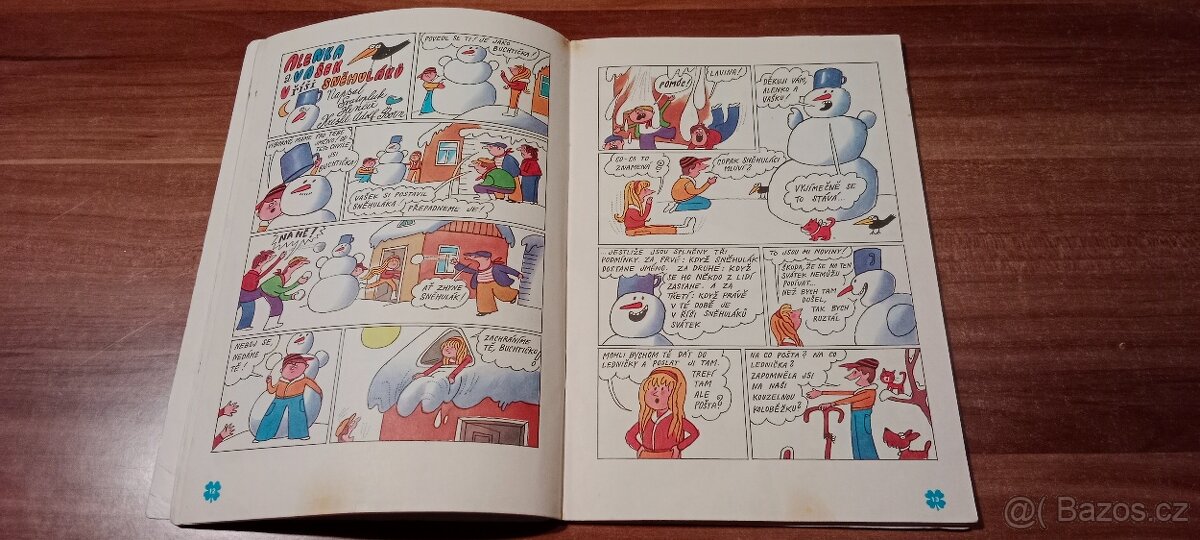 ALENKA
a VAŠEK
V ŘÍŠI SNĚHULÁKŮ
Napsal
Svatopluk
Hrnčíř
Kreslil Adolf Born
POVEDL SE TI! JE JAKO
BUCHTIČKA!
JMÉNO! OD
TÉTO CHVÍLE
JSI
BUCHTIČKA!
VAŠEK SI POSTAVIL
SNĚHULÁKA!
PŘEPADNEME JE!
NA NĚ!
AŤ ZHYNE
SNĚHULÁK!
NEBOJ SE,
NEDÁME
TĚ!
ZACHRÁNÍME
TĚ, BUCHTIČKO!
12
POMÓC!
LAVINA!
DĚKUJI VÁM,
ALENKO A
VAŠKU!
CO-CO TO
ZNAMENÁ?
COPAK SNĚHULÁCI
MLUVÍ?
VÝJIMEČNĚ SE
TO STÁVÁ...
...JESTLIŽE JSOU SPLNĚNY TŘI
PODMÍNKY. ZA PRVÉ: KDYŽ SNĚHULÁK
DOSTANE JMÉNO. ZA DRUHÉ: KDYŽ
SE HO NĚKDO Z LIDÍ
ZASTANE. A ZA
TŘETÍ: KDYŽ PRÁVĚ
V TÉ DOBĚ JE
V ŘÍŠI SNĚHULÁKŮ
SVÁTEK
TO JSOU MI NOVINY!
ŠKODA, ŽE SE NA TEN
SVÁTEK NEMŮŽU
PODÍVAT...
NEŽ BYCH TAM
DOŠEL,
TAK BYCH
ROZTÁL
MOHLI BYCHOM TĚ DÁT DO
LEDNIČKY A POSLAT JI TAM.
TREFÍ
TAM
ALE
POŠTA?
NA CO POŠTA? NA CO
LEDNIČKA?
ZAPOMNĚLA JSI
NA NAŠI
KOUZELNOU
KOLOBĚŽKU?
13
@( Bazos.cz